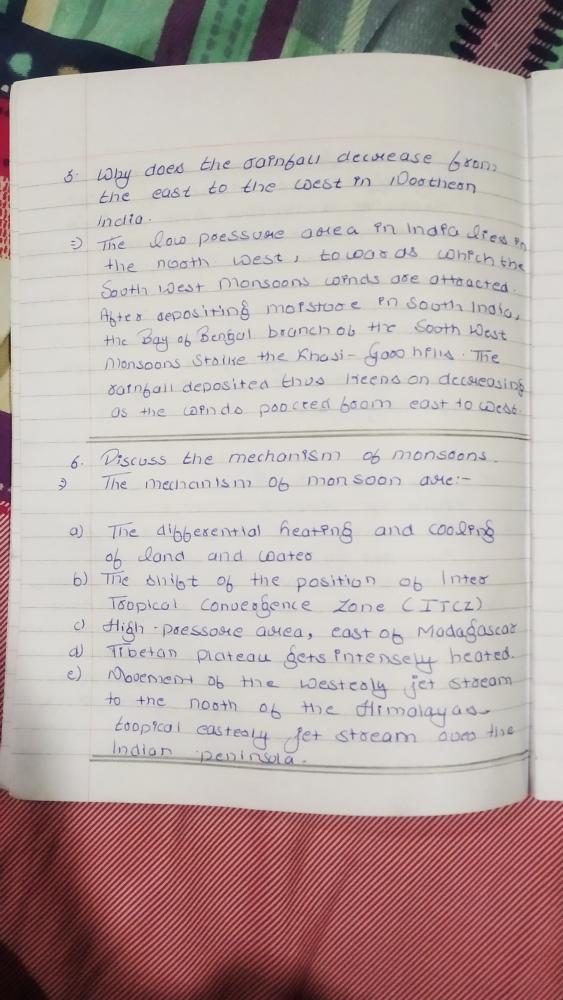 5. Why does the rainfall decrease from
the east to the west in Northern
India.
⇒ The low pressure area in India lies in
the north west, towards which the
South West Monsoons winds are attracted.
After depositing moisture in South India,
the Bay of Bengal branch of the South West
Monsoons strike the Khasi- Garo hills. The
rainfall deposited thus keens on decreasing
as the winds proceed from east to west.
6. Discuss the mechanism of monsoons.
⇒ The mechanism of monsoon are:-
a) The differential heating and cooling
of land and water
b) The shift of the position of Inter
Tropical Convergence Zone (ITCZ)
c) High-pressure area, east of Madagascar
d) Tibetan plateau gets intensely heated.
e) Movement of the westerly jet stream
to the north of the Himalayas
tropical easterly jet stream over the
Indian peninsula.